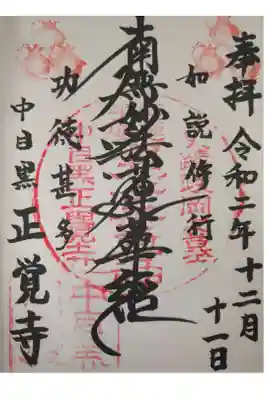 奉拝 令和二年十二月
十一日
如説修行
南無妙法蓮華経
功徳甚多
中目黒 正覚寺